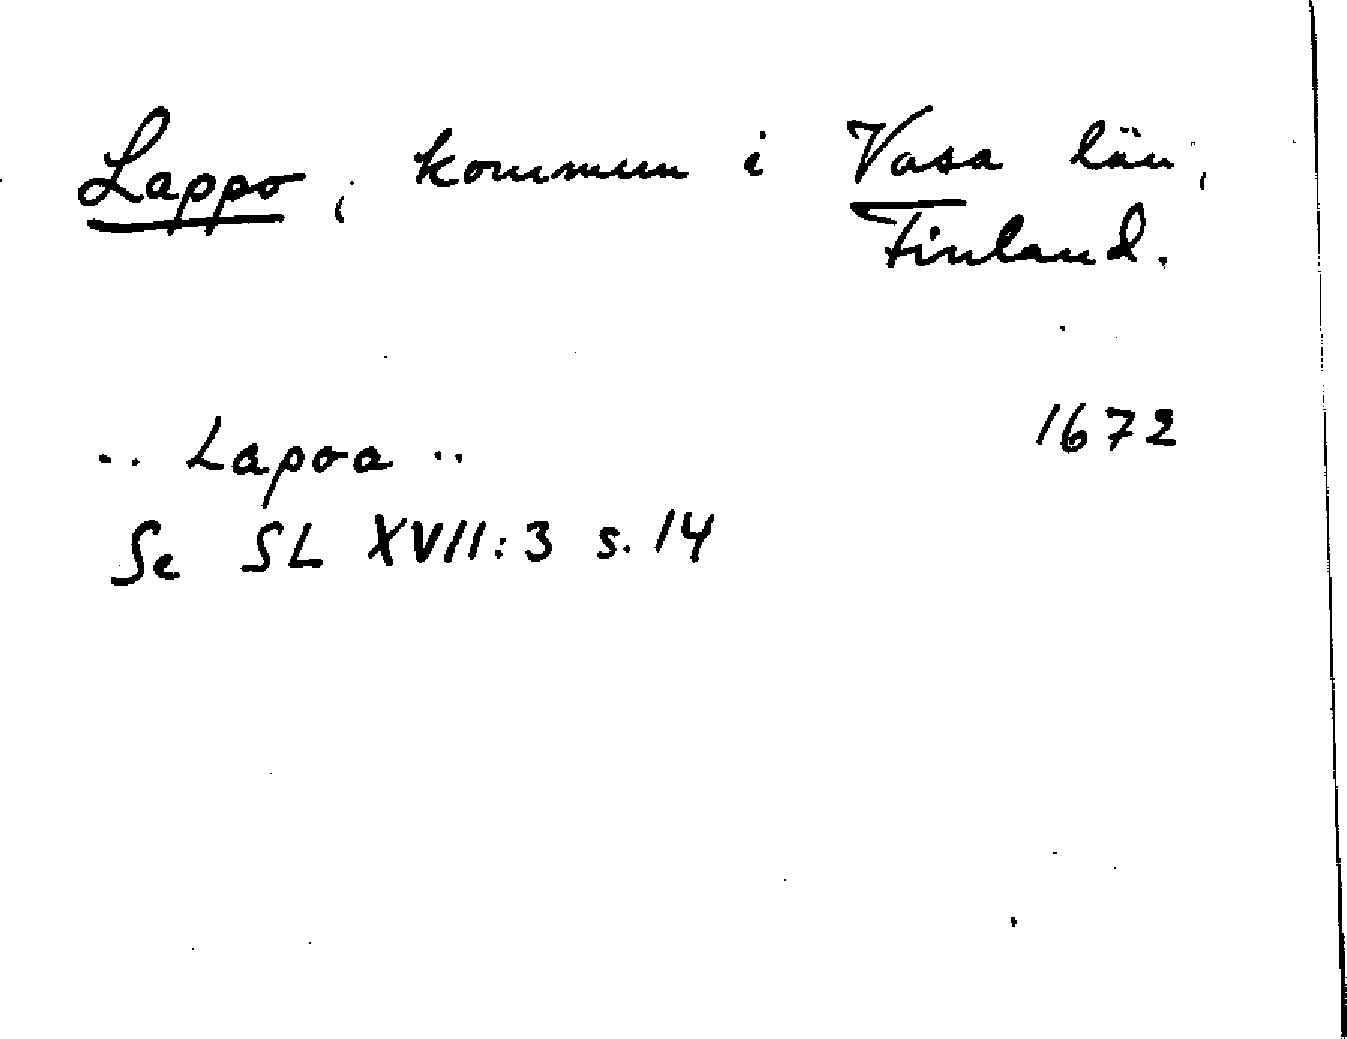 Lappo, kommun i Vasa län,
Finland.
.. Lapoa .. 1672
Se SL XVII:3 s. 14